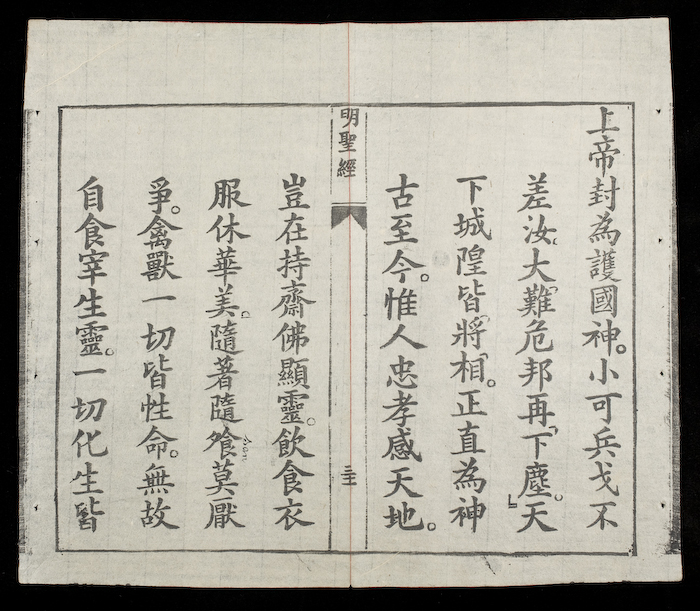 上帝封為護國神。小可兵戈不
差汝。大難危邦再下塵。天
下城隍皆將相。正直為神
古至今。惟人忠孝感天地。
明聖經
豈在持齋佛顯靈。飲食衣
服休華美。隨著隨飱莫厭
爭。禽獸一切皆性命。無故
自食宰生靈。一切化生皆